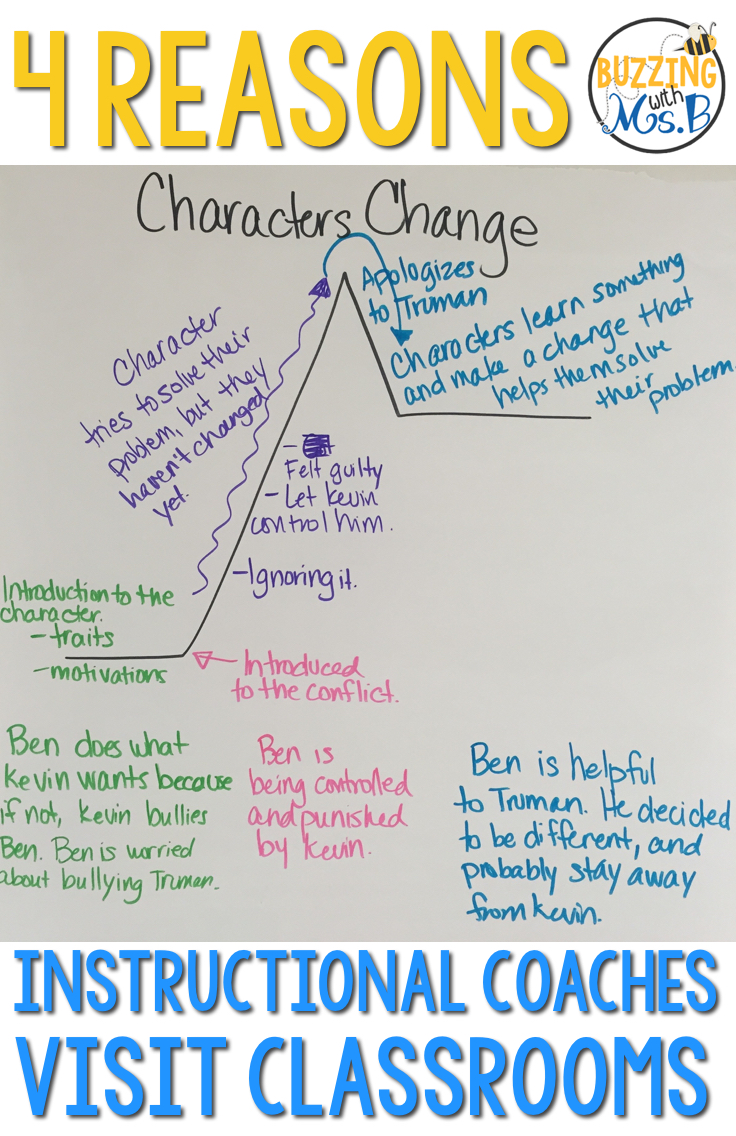 4 REASONS
BUZZING
with
Ms. B
Characters Change
Apologizes
to Truman
Characters learn something
and make a change that
helps them solve
their problem.
Character
tries to solve their
problem, but they
haven't changed
yet.
-
Felt guilty
- Let kevin
control him.
- Ignoring it.
Introduction to the
character.
- traits
- motivations
Introduced
to the conflict.
Ben does what
kevin wants because
if not, kevin bullies
Ben. Ben is worried
about bullying Truman.
Ben is
being controlled
and punished
by kevin.
Ben is helpful
to Truman. He decided
to be different, and
probably stay away
from kevin.
INSTRUCTIONAL COACHES
VISIT CLASSROOMS